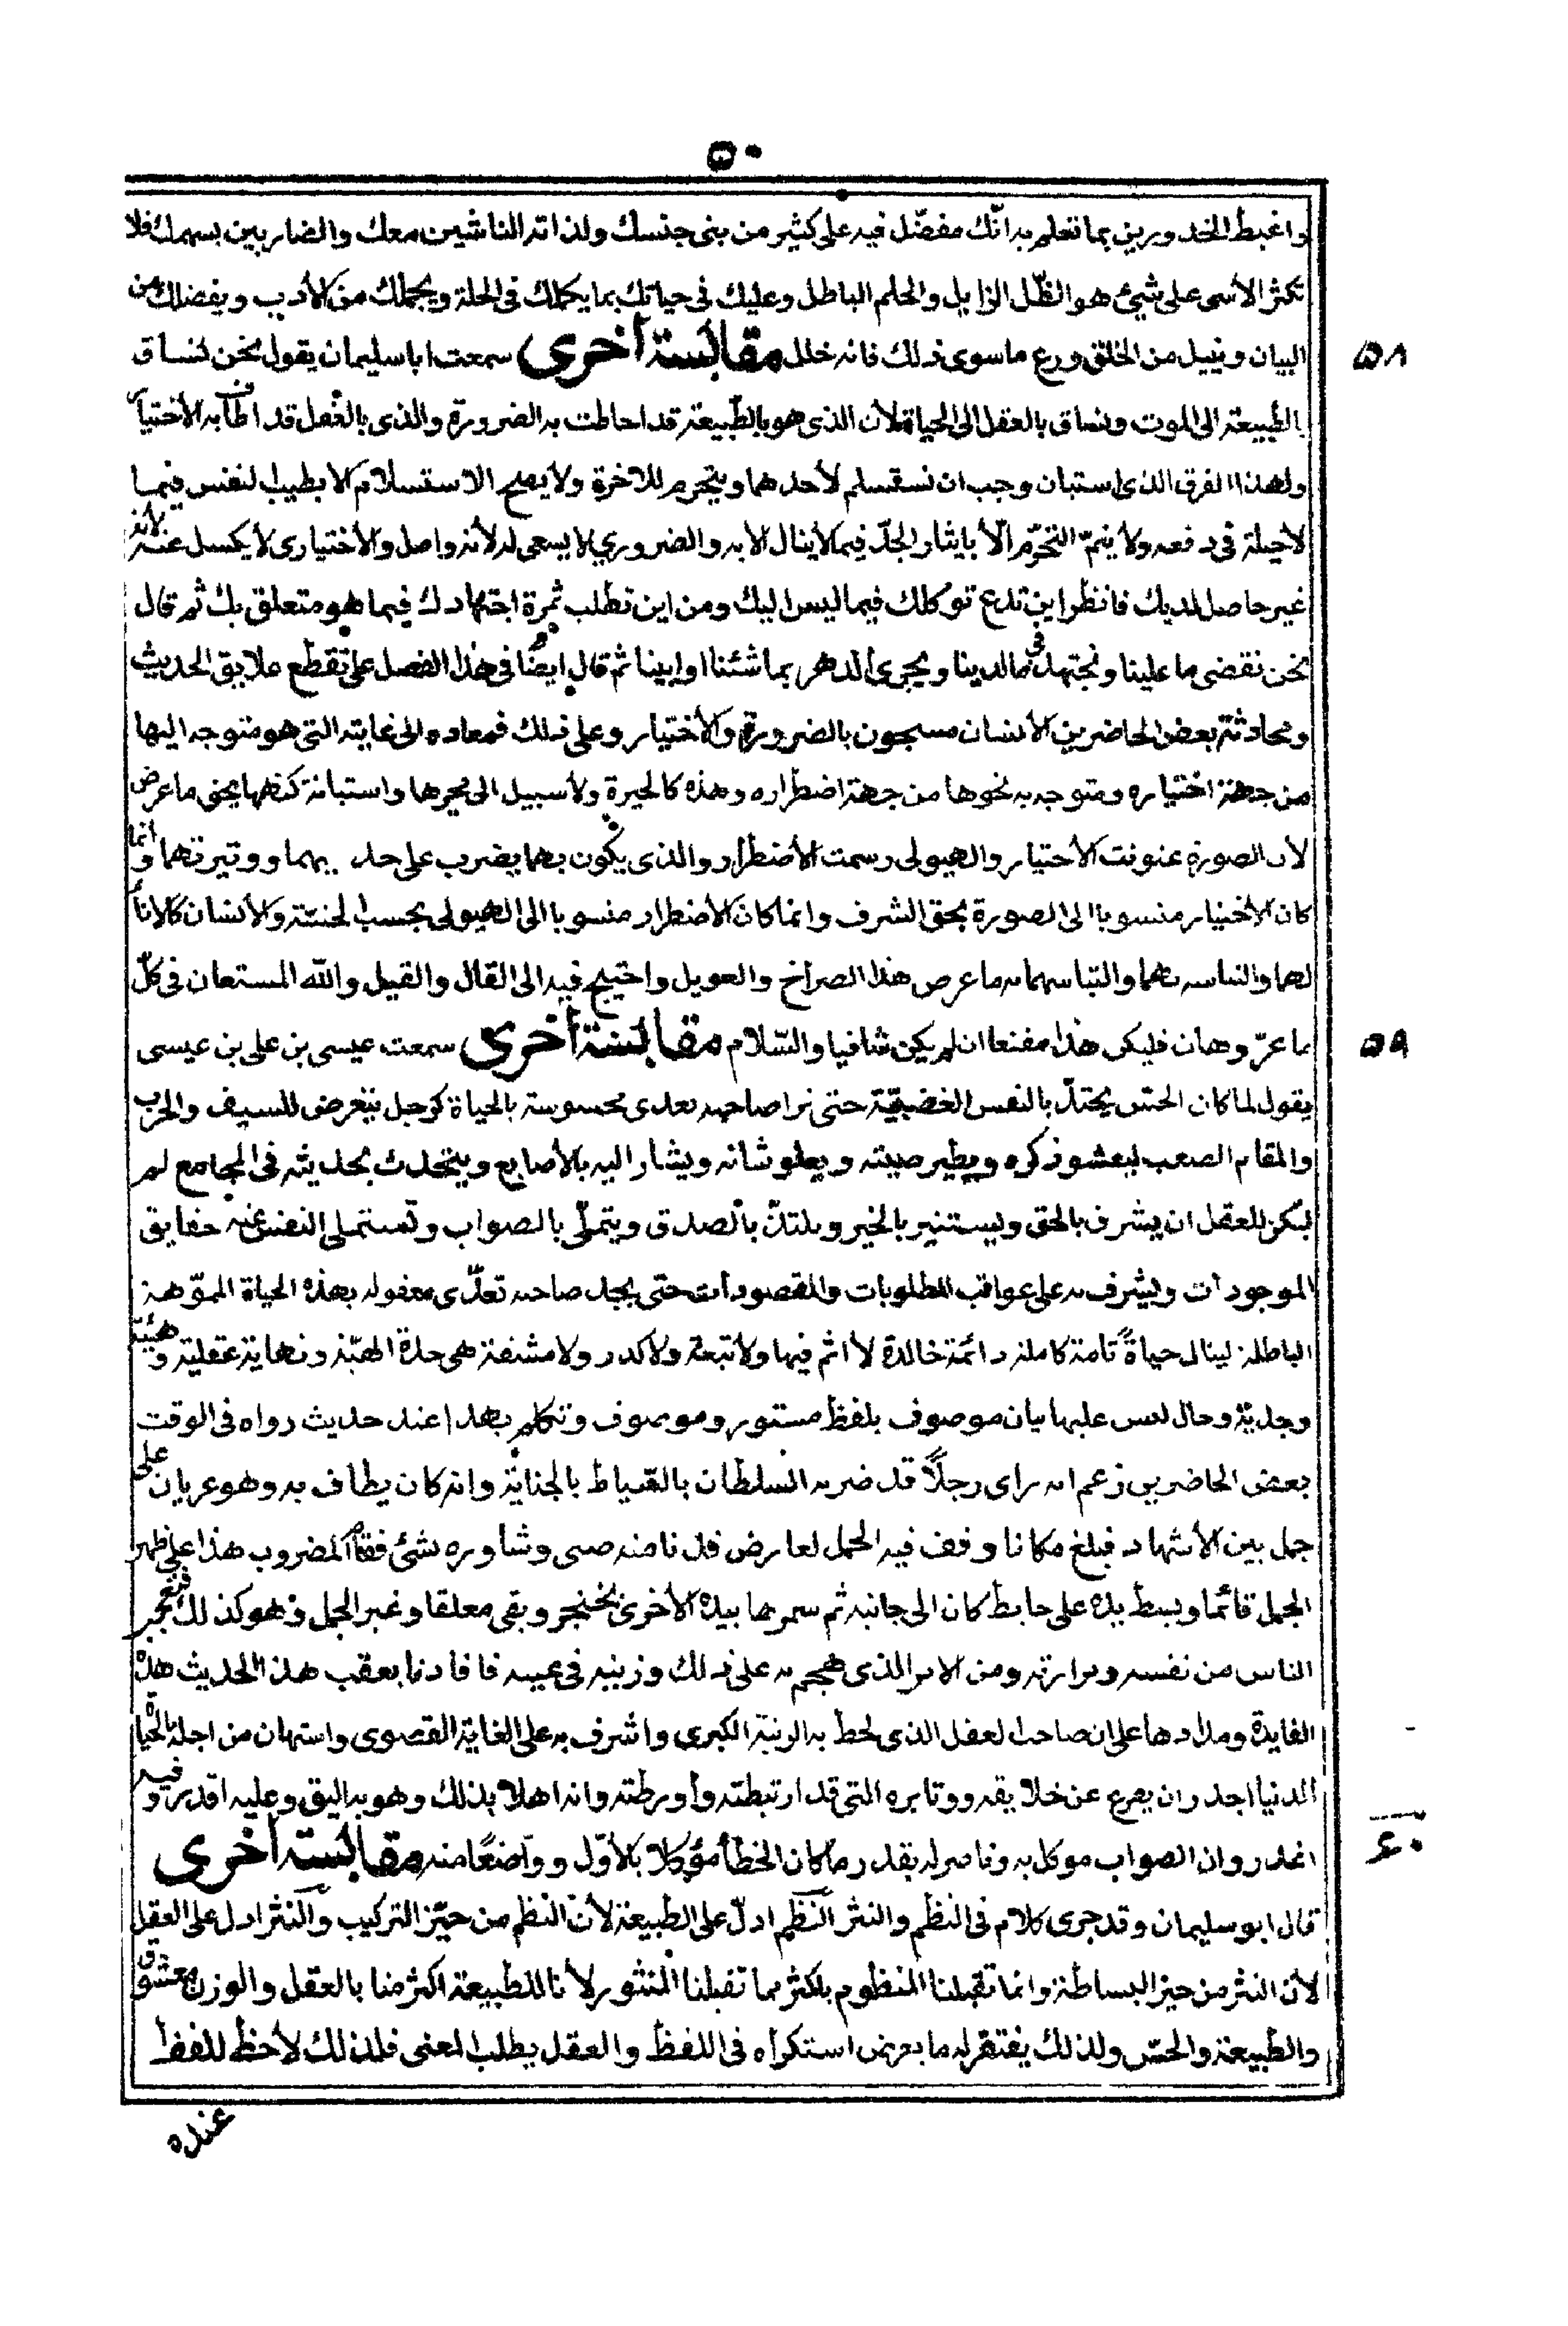 ٥٠
واغبط الخد ورين بما تعلم به انّك مفضّل فيه على كثير من بنى جنسك ولذاته الناشين معك والضاربين بسهمك فلا
تكثر الأسى على شيئ هو الظّل الزايل والحلم الباطل وعليك فى حياتك بما يكملك فى الحلة ويجملك من الأدب ويفضلك من
البيان ونبيل من الخلق ورع ماسوى ذلك فانه خلل مقابسة أخرى سمعت ابا سليمان يقول نحن نساق
٥٨
بالطبيعة الى الموت ونساق بالعقل الى الحياة لأن الذى هو بالطّبيعة قد احاطت به الضرورة والذى بالعقل قد اطاف به الأختيا
ولهذا الفرق الذى استبان وجب ان نستسلم لأحدهما ويتجرم للاخرة ولا يصح الاستسلام الا بطيب لنفس فيما
لاحيلة فى دفعه ولا يتمّ التحرّم الّا بايثار الجدّ فيما لا ينال الا به والضروري لا يسعى له لأنه واصل والأختيارى لا يكسل عنه لأنه
غير حاصل لديك فانظر اين تدع توكلك فيما ليس اليك ومن اين تطلب ثمرة اجتهادك فيما هو متعلق بك ثم قال
نحن نقضى ما علينا ونجتهد فى مالدينا ويجرى الدهر بما شئنا او ابينا ثم قال ايضًا فى هذا الفصل على تقطع علايق الحديث
ومحادثة بعض الحاضرين الأنسان مسجون بالضرورة والأختيار وعلى ذلك فمعاده الى غايته التى هو متوجه اليها
من جهة اختياره ومتوجه به نحوها من جهة اضطراره وهذه كالحيرة ولا سبيل الى محوها واستبانة كنهها يحتى ما عرض
لان الصورة عنونت الأختيار والهيولى رسمت الأضطرار والذى يكون بهما يضرب على حد يهما ووتيرتهما وانما
كان الأختيار منسوبا الى الصورة بحق الشرف وانما كان الأضطرار منسوبا الى الهيولى بحسب الخسّة والأنسان كالانأ
لهما والتباسه بهما والتباسهما به ما عرض هذا الصراخ والعويل واحتيج فيه الى القال والقيل والله المستعان فى كلّ
ما عزّ وهان فليكن هذا مقنعا ان لم يكن شافيا والسّلام مقابسة أخرى سمعت عيسى بن على بن عيسى
٥٩
يقول لما كان الحسّ يحتدّ بالنفس الغضبيّة حتى نرا صاحبه تعدى محسوسة بالحياة كرجل يتعرض للسيف والحرب
والمقام الصعب ليعشو ذكره ويطير صيته ويعلو شانه ويشار اليه بالأصابع ويتحدث بحديثه فى المجامع لم
ينكر للعقل ان يشرف بالحق ويستنير بالخير ويلتذّ بالصدق ويتملّى بالصواب وتستملى النفس عنه حقايق
الموجودات ويشرف به على عواقب المطلوبات والمقصودات حتى يجد صاحبه تعدّى معقوله بهذه الحياة المموّهة
الباطلة لينال حياةً تامة كاملة دائمة خالدة لا اثم فيها ولا تبعة ولا كدر ولا مشقة هى حدة الهيّة ونهاية عقلية وهيئة
وجدية وحال ليس عليها بيان موصوف بلفظ مستور وموصوف وتكلم بهذا عند حديث رواه فى الوقت
بعض الحاضرين زعم انه راى رجلًا قد ضربه السلطان بالسّياط بالجناية وانه كان يطاف به وهو عريان على
جمل بين الأشهاد فبلغ مكانا وقف فيه الجمل لعارض فدنا منه صبى وشاوره بشئ فقام المضروب هذا على ظهر
الجمل قائما وبسط يده على حايط كان الى جانبه ثم سمرها بيده الأخرى بخنجر وبقى معلقا وغبر الجمل وهو كذلك فتعجب
الناس من نفسه ومرارته ومن الامر الذى هجم به على ذلك وزينه فى عينيه فافادنا بعقب هذا الحديث هذه
الفايدة ومدادها على ان صاحب العقل الذى لحظ به الرتبة الكبرى واشرف به على الغاية القصوى واستهان من اجله بالحيا
الدنيا اجدر ان يعرى عن خلايقه ووتايره التى قد ارتبطته وأورطته وانه اهلا بذلك وهو به اليق وعليه اقدر وفيه
اعذر وان الصواب موكل به وناصر له بقدر ما كان الخطأ مؤكلا بالأوّل وواضعًا منه مقابسة أخرى
٦٠
قال ابو سليمان وقد جرى كلام فى النظم والنثر النّظم ادلّ على الطبيعة لأن النظم من حيّز التركيب والنثر ادل على العقل
لأن النثر من حيز البساطة وانما تقبلنا المنظوم بأكثر مما تقبلنا المنثور لأنا للطبيعة اكثر منا بالعقل والوزن معشوق
والطبيعة والحسّ ولذلك يفتقر له ما يعرض استكراه فى اللفظ والعقل يطلب المعنى فلذلك لا حظ للفظ
عنده